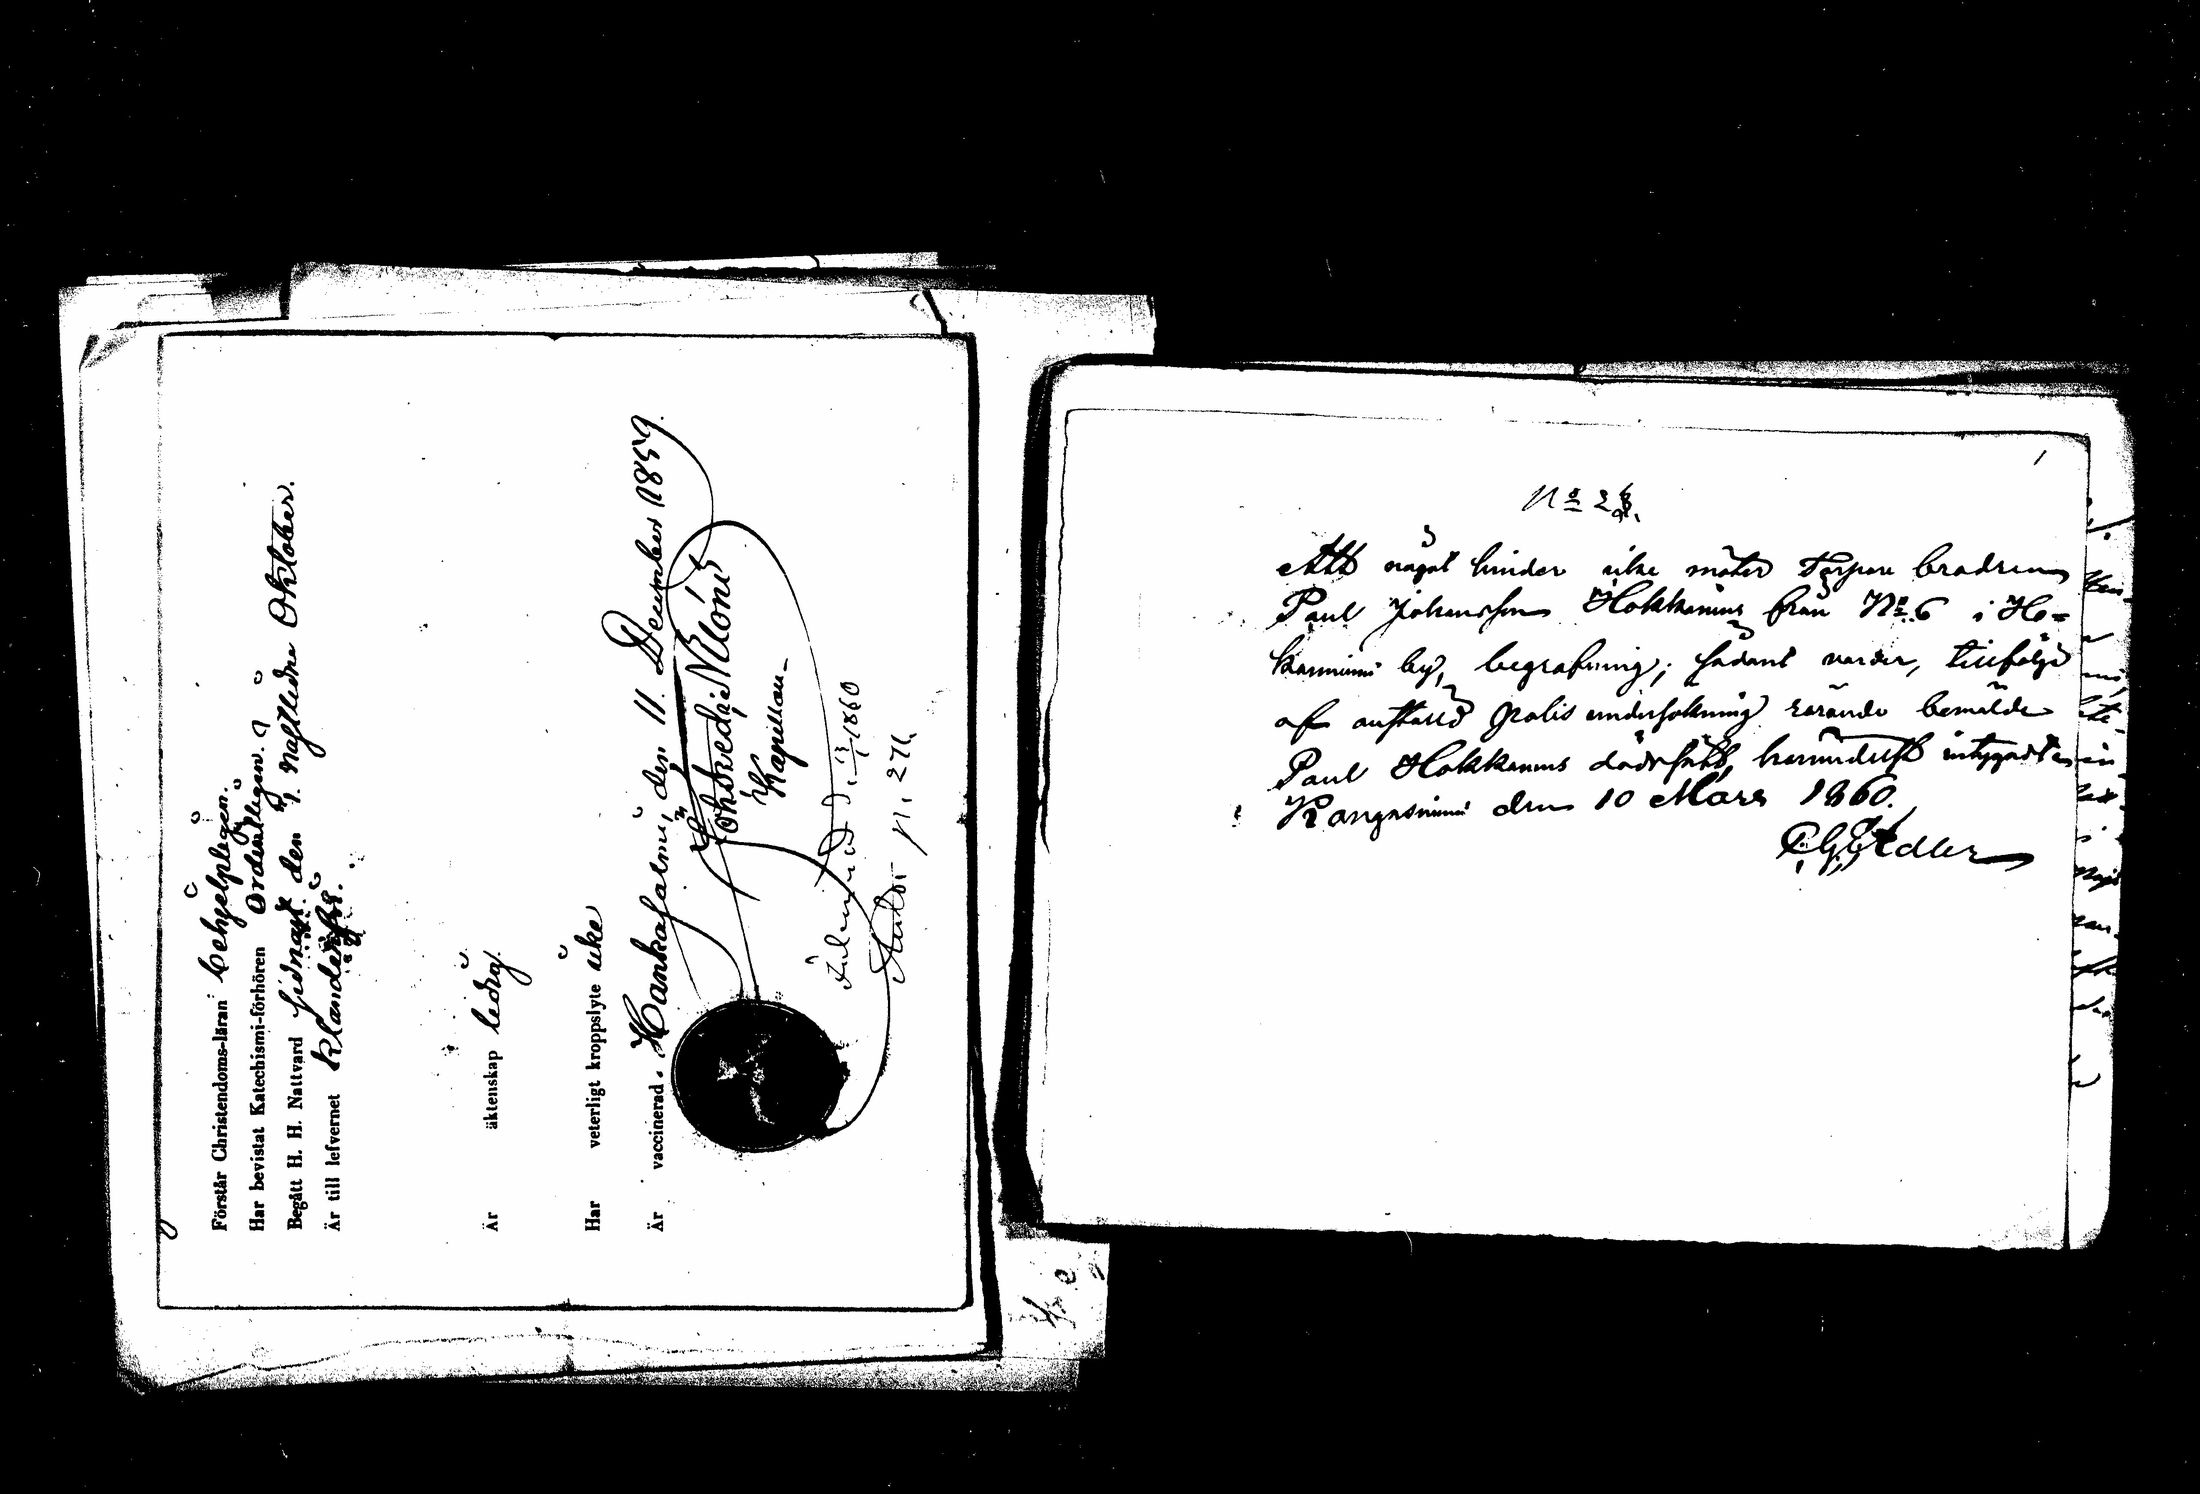 Förstår Christendoms-läran behjelpligen.
Har bevistat Katechismi-förhören Ordentligen.
Begått H. H. Nattvard sednast den 9. nästledne Oktober.
Är till lefvernet klanderfri.
Är äktenskap ledig.
Har veterligt kroppslyte icke
Är vaccinerad. Hankasalmi, den 11. December 1859.
Kapellan
1860
N. 271.
N:o 2
Att något hinder icke möter Torpare brodren
Paul Johansson Hokkanens från N:o 6 i Ho=
kanniemi by, begrafning; sådant varder, tillfölje
af anstäld polis undersökning rörande bemälde
Paul Hokkanens dödssätt, härmedelst intygadt.
Kangasniemi den 10 Mars 1860.
Adler